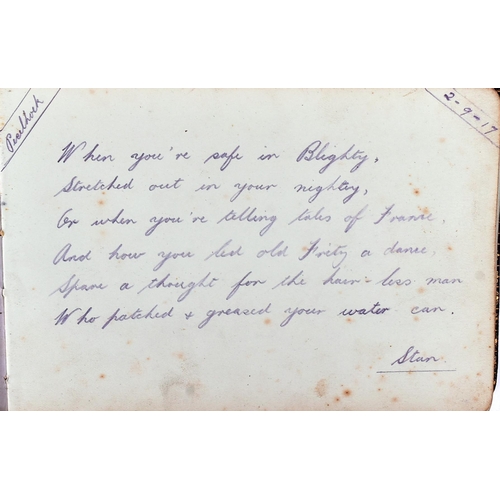 Peelhoek
2-9-17
When you're safe in Blighty,
Stretched out in your nighty,
Or when you're telling tales of France,
And how you led old Fritz a dance,
Spare a thought for the hair-less man
Who patched & greased your water can.
Stan